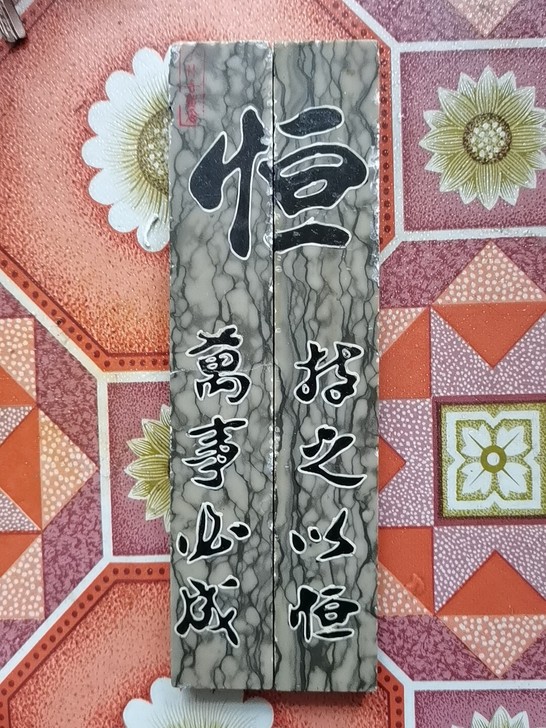 恒
持之以恒
萬事必成